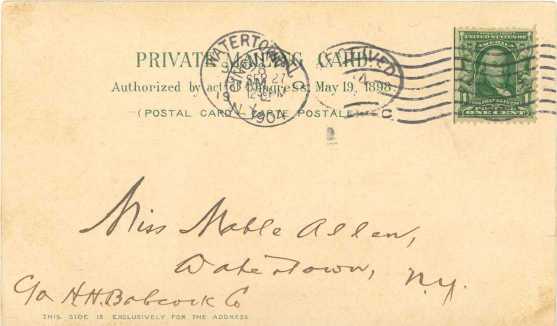 PRIVATE MAILING CARD
Authorized by act of Congress, May 19, 1898.
(POSTAL CARD - CARTE POSTALE)
WATERTOWN
SEP 27
N.Y.
1904
RECEIVED
UNITED STATES OF AMERICA
ONE CENT
Miss Mable Allen,
Watertown, N.Y.
c/o H.H. Babcock Co
THIS SIDE IS EXCLUSIVELY FOR THE ADDRESS